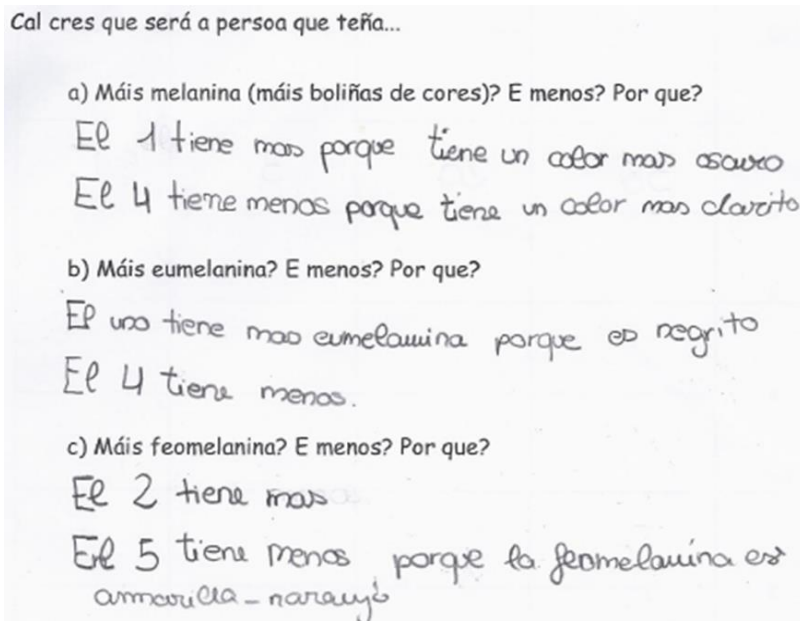 Cal cres que será a persoa que teña...
a) Máis melanina (máis boliñas de cores)? E menos? Por que?
El 1 tiene mas porque tiene un color mas oscuro
El 4 tiene menos porque tiene un color mas clarito
b) Máis eumelanina? E menos? Por que?
El uno tiene mas eumelanina porque es negrito
El 4 tiene menos.
c) Máis feomelanina? E menos? Por que?
El 2 tiene mas
El 5 tiene menos porque la feomelanina es
ammarilla-naranja